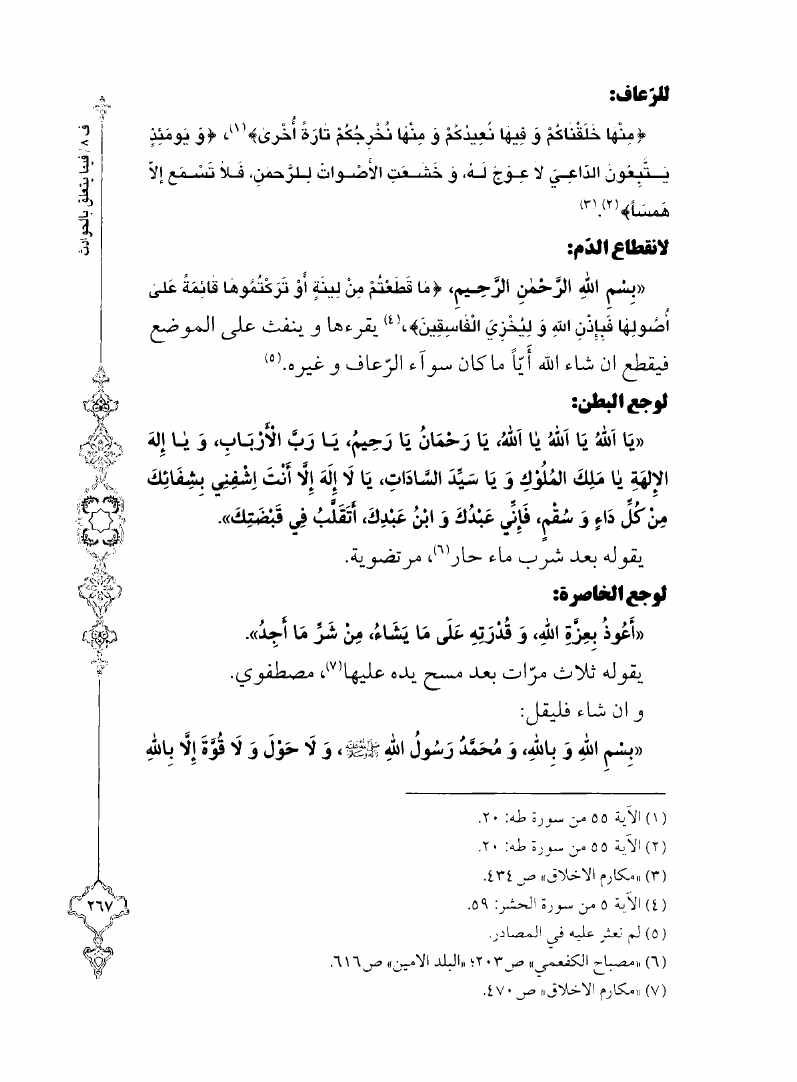 للرّعاف:
﴿مِنْها خَلَقْناكُمْ وَ فِيها نُعِيدُكُمْ وَ مِنْها نُخْرِجُكُمْ تارَةً أُخْرى﴾(١)، ﴿وَ يومَئِذٍ
يَــتَّبِعُونَ الدّاعِـيَ لا عِـوَجَ لَـهُ، وَ خَشَـعَتِ الأصْـواتُ لِـلرَّحمٰنِ، فَـلا تَسْـمَع إلاّ
هَمسَاً﴾(٢).(٣)
لانقطاع الدّم:
«بِسْمِ اللهِ الرَّحْمٰنِ الرَّحِـيمِ، ﴿مَا قَطَعْتُمْ مِنْ لِينَةٍ أوْ تَرَكْتُمُوها قائِمَةً عَلىٰ
أُصُولِها فَبِإذْنِ اللهِ وَ لِيُخْزِيَ الْفَاسِقِينَ﴾،(٤) يقرءها و ينفث على الموضع
فيقطع ان شاء الله أيّاً ماكان سوآء الرّعاف و غيره.(٥)
لوجع البطن:
«يَا اَللهُ يَا اَللهُ يٰا اَللهُ، يَا رَحْمَانُ يَا رَحِيمُ، يَـا رَبَّ الأَرْبَـابِ، وَ يَـا إلهَ
الإلِهَةِ يٰا مَلِكَ المُلُوْكِ وَ يَا سَيِّدَ السَّادَاتِ، يَا لَا إلَهَ إلَّا أَنْتَ اِشْفِنِي بِشِفَائِكَ
مِنْ كُلِّ دَاءٍ وَ سُقْمٍ، فَإنِّي عَبْدُكَ وَ ابْنُ عَبْدِكَ، أَتَقَلَّبُ فِي قَبْضَتِكَ».
يقوله بعد شرب ماء حار(٦)، مرتضوية.
لوجع الخاصرة:
«أَعُوذُ بِعِزَّةِ اللهِ، وَ قُدْرَتِهِ عَلَى مَا يَشَاءُ، مِنْ شَرِّ مَا أَجِدُ».
يقوله ثلاث مرّات بعد مسح يده عليها(٧)، مصطفوي.
و ان شاء فليقل:
«بِسْمِ اللهِ وَ بِاللهِ، وَ مُحَمَّدٌ رَسُولُ اللهِ ﷺ، وَ لَا حَوْلَ وَ لَا قُوَّةَ إلَّا بِاللهِ
(١) الآية ٥٥ من سورة طه: ٢٠.
(٢) الآية ٥٥ من سورة طه: ٢٠.
(٣) «مكارم الاخلاق» ص ٤٣٤.
(٤) الآية ٥ من سورة الحشر: ٥٩.
(٥) لم نعثر عليه في المصادر.
(٦) «مصباح الكفعمي» ص ٢٠٣؛ «البلد الامين» ص ٦١٦.
(٧) «مكارم الاخلاق» ص ٤٧٠.
ف ٨ / فيما يتعلق بالحوادث
٢٦٧